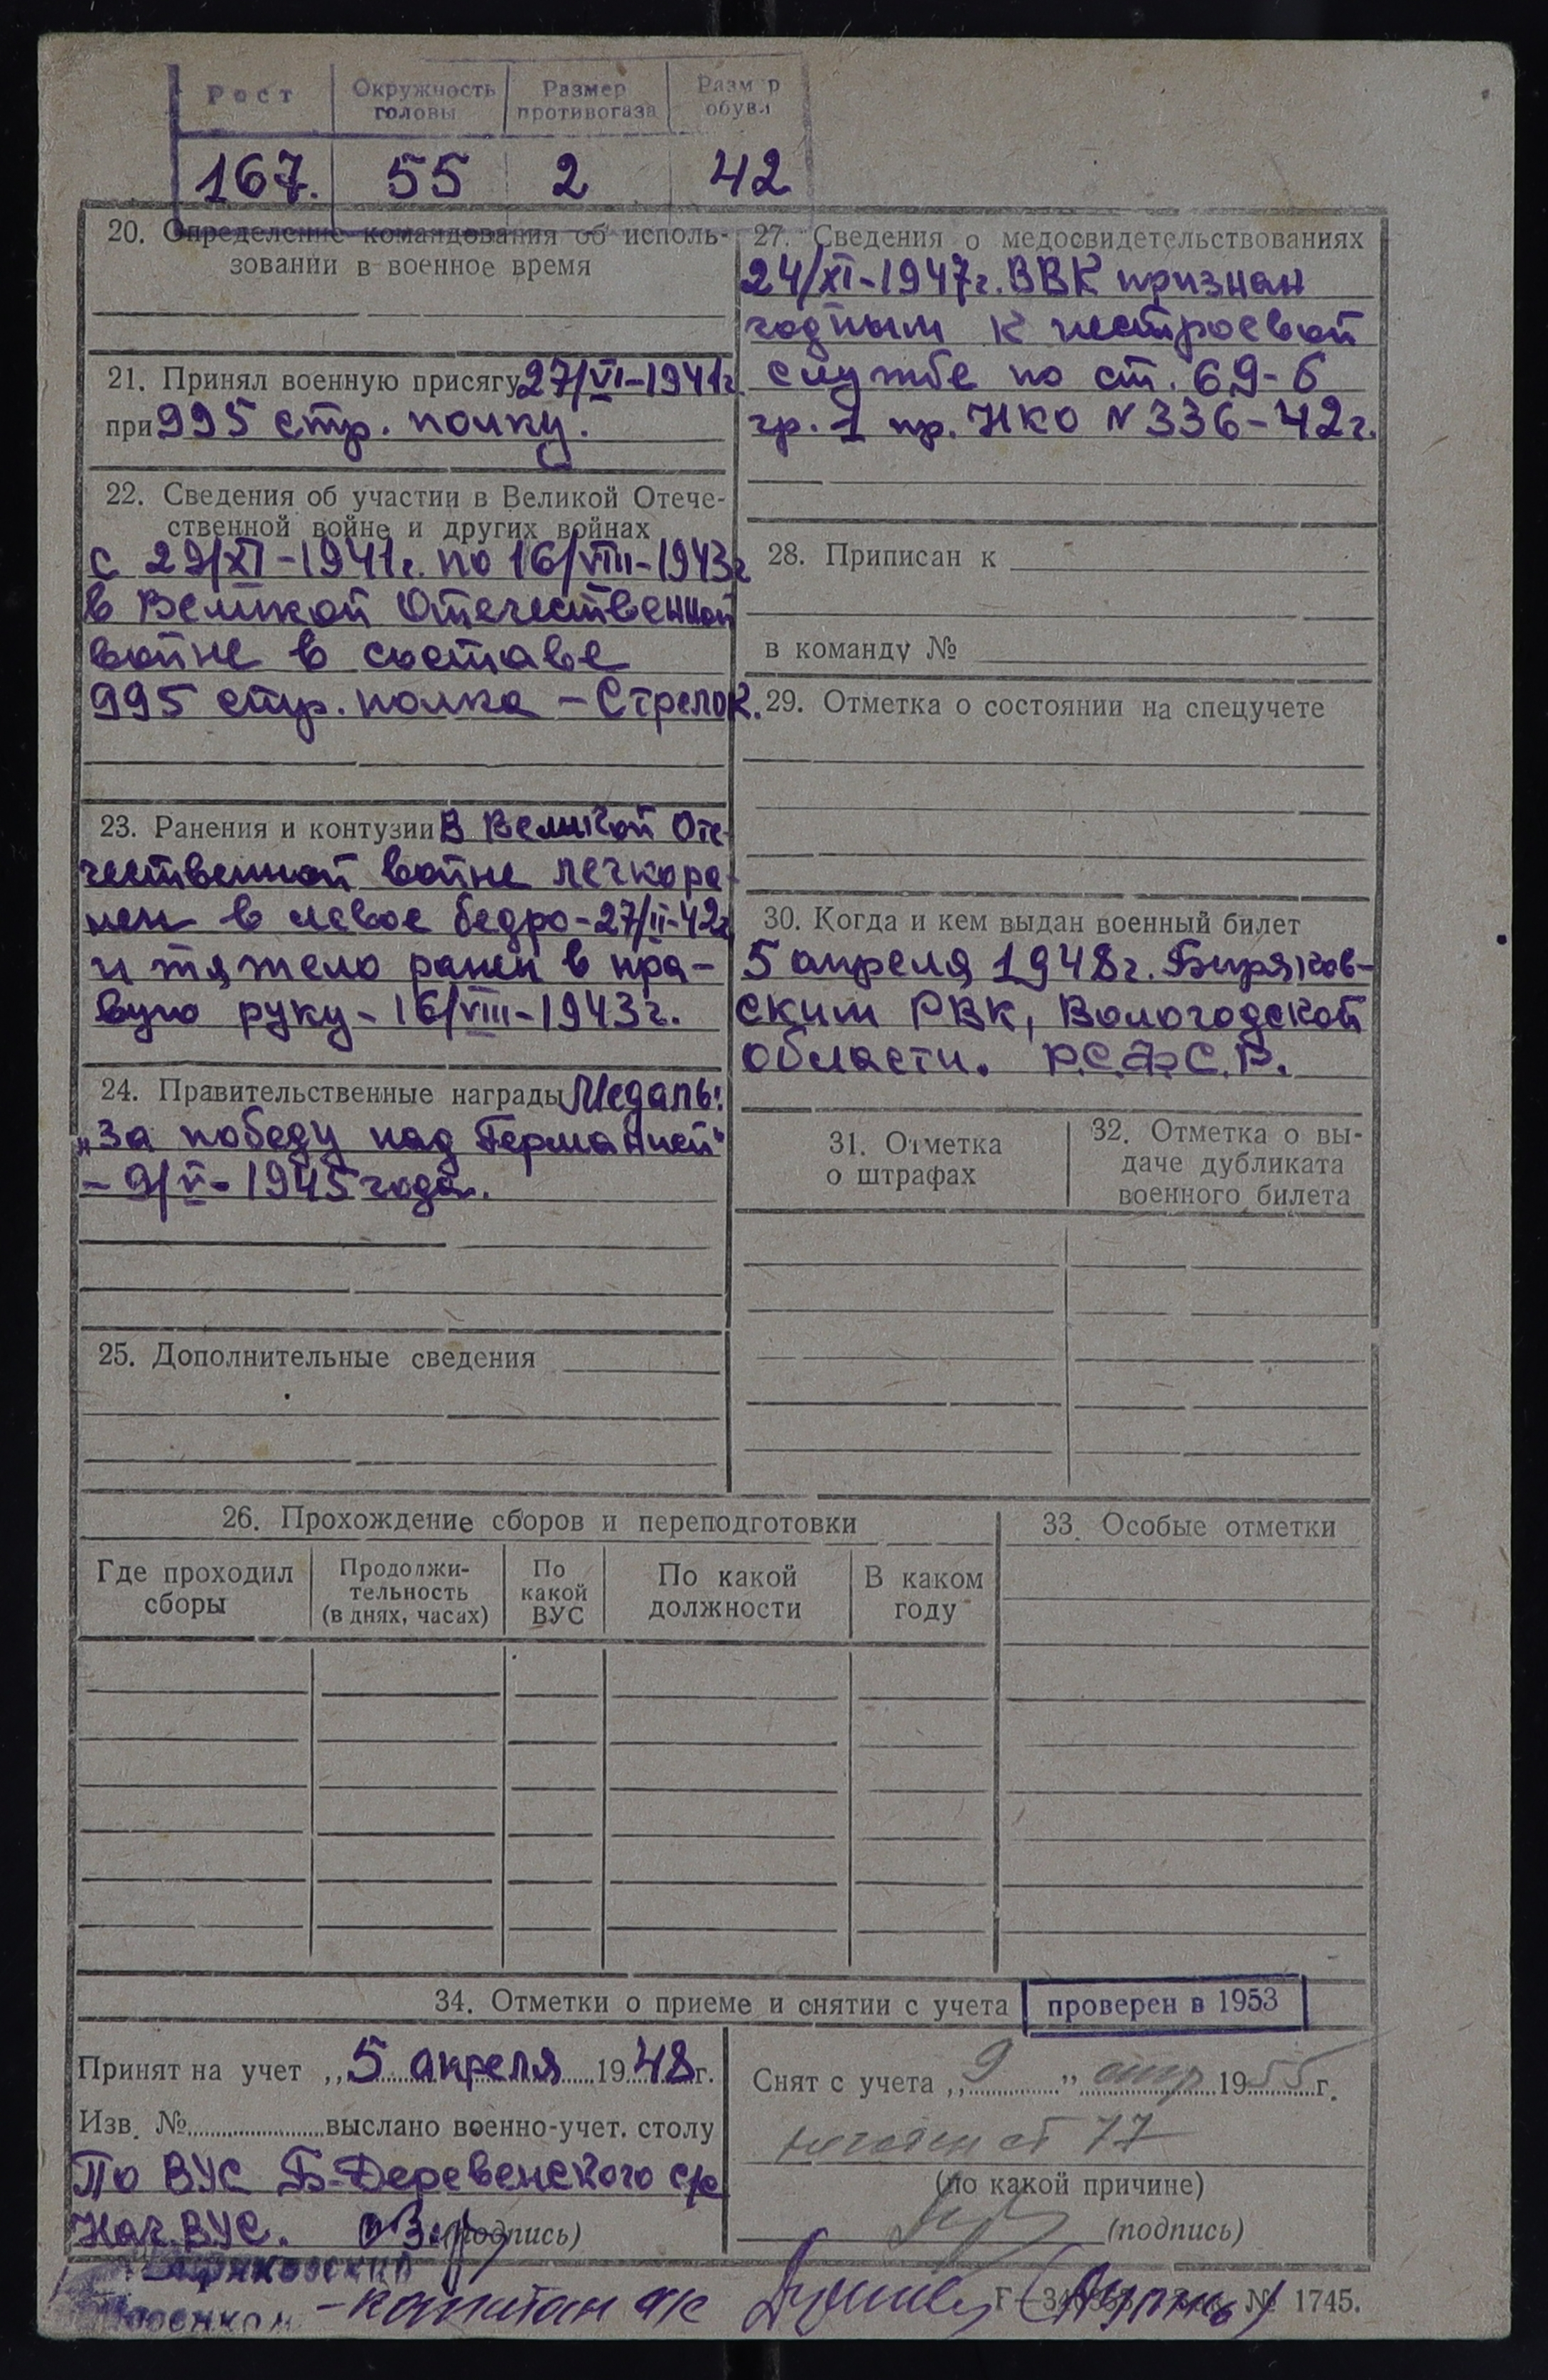 Рост
Окружность головы
Размер противогаза
Разм р обуви
167. 55 2 42
20. Определение командования об исполь-
зовании в военное время
21. Принял военную присягу 27/VI-1941г.
при 995 стр. полку.
22. Сведения об участии в Великой Отече-
ственной войне и других войнах
с 29/XI-1941г. по 16/VIII-1943г
в Великой Отечественной
войне в составе
995 стр. полка - Стрелок.
23. Ранения и контузии В Великой Оте-
чественной войне легкора-
нен в левое бедро-27/II-42г
и тяжело ранен в пра-
вую руку-16/VIII-1943г.
24. Правительственные награды Медаль:
„За победу над Германией“
- 9/V-1945 года.
25. Дополнительные сведения
27. Сведения о медосвидетельствованиях
24/XI-1947г. ВВК признан
годным к нестроевой
службе по ст. 69-б
гр. 1 пр. НКО N 336-42г.
28. Приписан к
в команду №
29. Отметка о состоянии на спецучете
30. Когда и кем выдан военный билет
5 апреля 1948г. Биряков-
ским РВК, Вологодской
области. Р.С.Ф.С.Р.
31. Отметка
о штрафах
32. Отметка о вы-
даче дубликата
военного билета
26. Прохождение сборов и переподготовки
Где проходил
сборы
Продолжи-
тельность
(в днях, часах)
По
какой
ВУС
По какой
должности
В каком
году
33. Особые отметки
34. Отметки о приеме и снятии с учета
проверен в 1953
Принят на учет „5 апреля 1948г.
Изв. № выслано военно-учет. столу
По ВУС Б-Деревенского с/с
Нач. ВУС. (подпись)
Снят с учета „9” 1955г.
негоден ст 77
(по какой причине)
(подпись)
-капитан а/с
№ 1745.